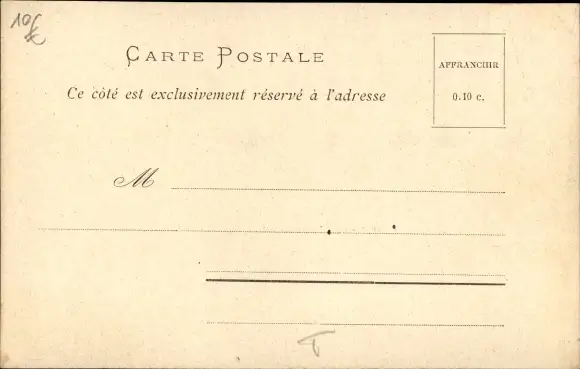 10€
CARTE POSTALE
AFFRANCHIR
0.10 c.
Ce côté est exclusivement réservé à l'adresse
M
T